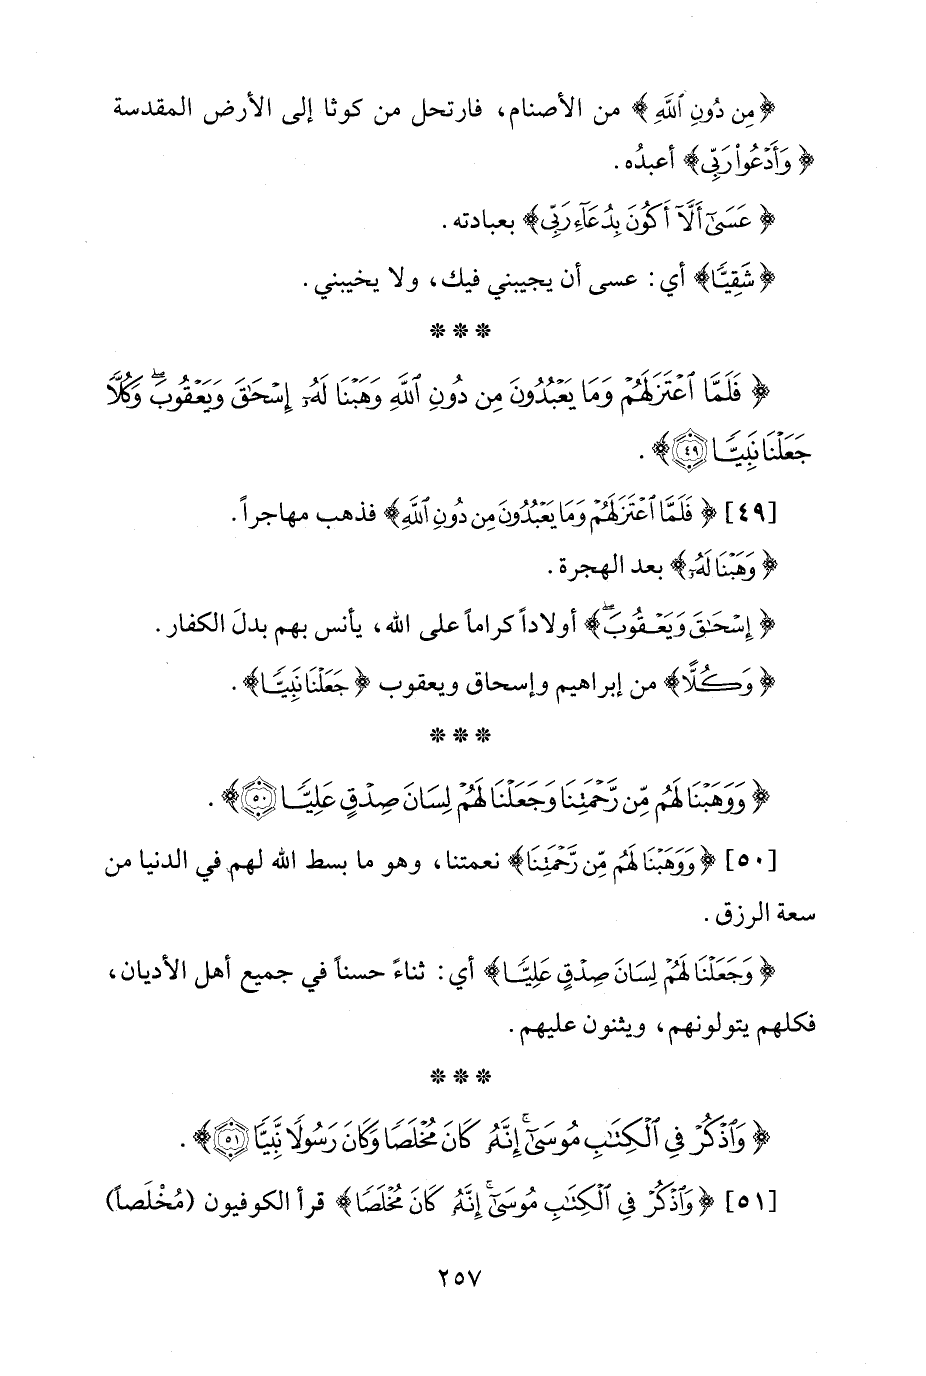 ﴿مِن دُونِ ٱللَّهِ﴾ من الأصنام، فارتحل من كوثا إلى الأرض المقدسة
﴿وَأَدْعُوا۟ رَبِّى﴾ أعبدُه.
﴿عَسَىٰٓ أَلَّآ أَكُونَ بِدُعَآءِ رَبِّى﴾ بعبادته.
﴿شَقِيًّا﴾ أي: عسى أن يجيبني فيك، ولا يخيبني.
* * *
﴿فَلَمَّا ٱعْتَزَلَهُمْ وَمَا يَعْبُدُونَ مِن دُونِ ٱللَّهِ وَهَبْنَا لَهُۥٓ إِسْحَٰقَ وَيَعْقُوبَ ۖ وَكُلًّا
جَعَلْنَا نَبِيًّا ٤٩﴾.
[٤٩] ﴿فَلَمَّا ٱعْتَزَلَهُمْ وَمَا يَعْبُدُونَ مِن دُونِ ٱللَّهِ﴾ فذهب مهاجراً.
﴿وَهَبْنَا لَهُۥٓ﴾ بعد الهجرة.
﴿إِسْحَٰقَ وَيَعْقُوبَ ۖ﴾ أولاداً كراماً على الله، يأنس بهم بدلَ الكفار.
﴿وَكُلًّا﴾ من إبراهيم وإسحاق ويعقوب ﴿جَعَلْنَا نَبِيًّا﴾.
* * *
﴿وَوَهَبْنَا لَهُم مِّن رَّحْمَتِنَا وَجَعَلْنَا لَهُمْ لِسَانَ صِدْقٍ عَلِيًّا ٥٠﴾.
[٥٠] ﴿وَوَهَبْنَا لَهُم مِّن رَّحْمَتِنَا﴾ نعمتنا، وهو ما بسط الله لهم في الدنيا من
سعة الرزق.
﴿وَجَعَلْنَا لَهُمْ لِسَانَ صِدْقٍ عَلِيًّا﴾ أي: ثناءً حسناً في جميع أهل الأديان،
فكلهم يتولونهم، ويثنون عليهم.
* * *
﴿وَٱذْكُرْ فِى ٱلْكِتَٰبِ مُوسَىٰٓ ۚ إِنَّهُۥ كَانَ مُخْلَصًا وَكَانَ رَسُولًا نَّبِيًّا ٥١﴾.
[٥١] ﴿وَٱذْكُرْ فِى ٱلْكِتَٰبِ مُوسَىٰٓ ۚ إِنَّهُۥ كَانَ مُخْلَصًا﴾ قرأ الكوفيون (مُخْلَصاً)
٢٥٧